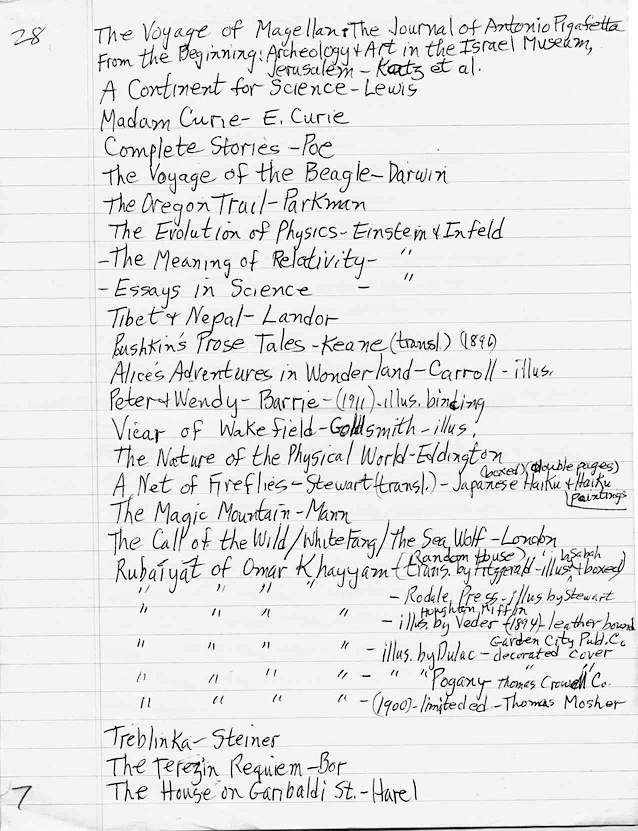 28
The Voyage of Magellan: The Journal of Antonio Pigafetta
From the Beginning: Archeology & Art in the Israel Museum,
Jerusalem - Katz et al.
A Continent for Science - Lewis
Madam Curie - E. Curie
Complete Stories - Poe
The Voyage of the Beagle - Darwin
The Oregon Trail - Parkman
The Evolution of Physics - Einstein & Infeld
- The Meaning of Relativity - "
- Essays in Science - "
Tibet & Nepal - Landor
Pushkin's Prose Tales - Keane (transl.) (1896)
Alice's Adventures in Wonderland - Carroll - illus.
Peter & Wendy - Barrie - (1911) - illus. binding
Vicar of Wakefield - Goldsmith - illus.
The Nature of the Physical World - Eddington
(boxed) (double pages)
A Net of Fireflies - Stewart (transl.) - Japanese Haiku & Haiku
Paintings
The Magic Mountain - Mann
The Call of the Wild / White Fang / The Sea Wolf - London
(Random House) by Sabah
Rubaiyat of Omar Khayyam - (trans. by Fitzgerald - illus. & boxed)
" " " " - Rodale Press - illus by Stewart
Houghton Mifflin
" " " " - illus. by Veder - (1894) - leather bound
Garden City Pub. Co
" " " " - illus. by Dulac - decorated cover
" " " " - " " Pogany - Thomas Crowell Co. " "
" " " " - (1900) - limited ed - Thomas Mosher
Treblinka - Steiner
The Terezin Requiem - Bor
7
The House on Garibaldi St. - Harel